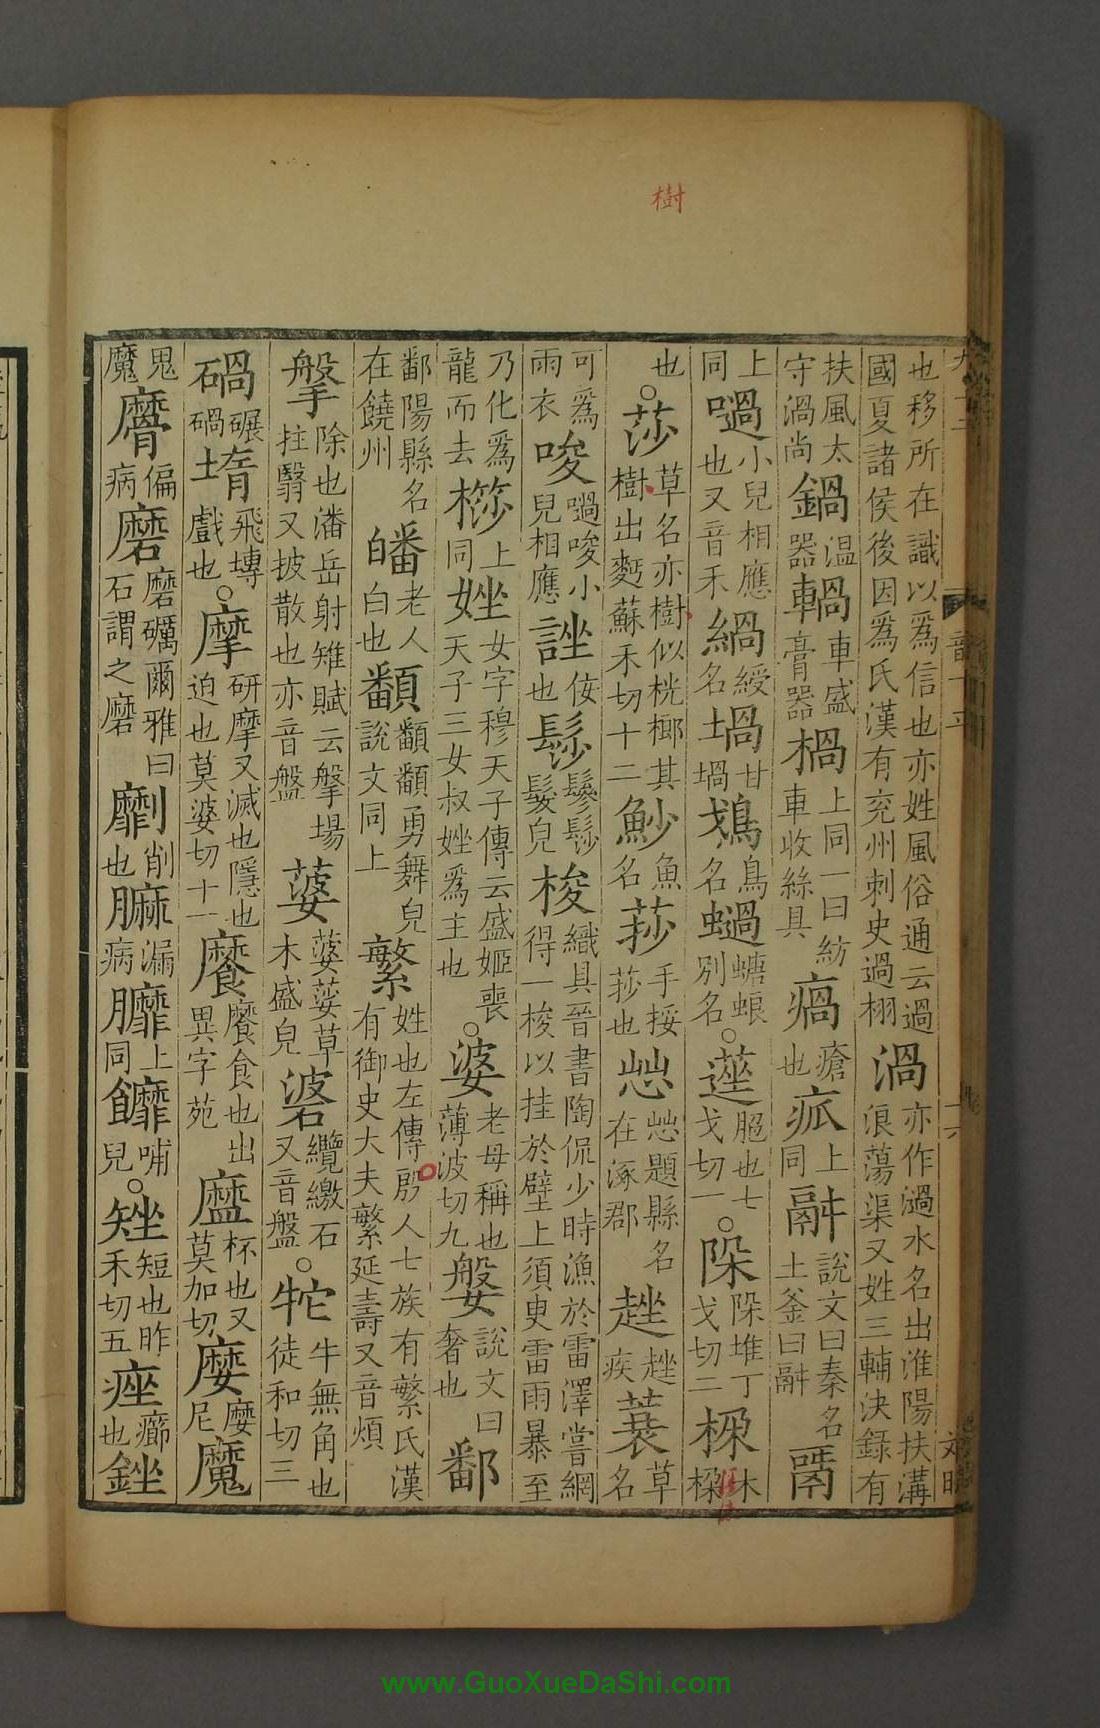 樹
也移所在識以爲信也亦姓風俗通云過國夏諸侯後因爲氏漢有兖州刺史過栩渦亦作濄水名出淮陽扶溝浪蕩渠又姓三輔決録有
扶風太守渦尚鍋温器䡢車盛膏器楇上同一曰紡車收絲具瘑瘡也㽿上同䤈說文曰秦名土釜曰䤈鬲
上同嗢小兒相應也又音禾緺綬名堝甘堝䳡鳥名蠣螗蜋別名○䔺脃也七戈切一○陊陊堆丁戈切二㭬木㰁
也○莎草名亦樹似桄榔其樹出麪蘇禾切十二魦魚名挱手挼挱也惢惢題縣名在涿郡趖趖疾蓑草名
可爲雨衣唆嗢唆小兒相應䛗侒也髿鬖髿髮皃梭織具晉書陶侃少時漁於雷澤嘗網得一梭以挂於壁上須臾雷雨暴至
乃化爲龍而去桫上同㛗女字穆天子傳云盛姬喪天子三女叔㛗爲主也○婆老母稱也薄波切九媻說文曰奢也鄱
鄱陽縣名在饒州皤老人白也䪛䪛䪛勇舞皃說文同上繁姓也左傳殷人七族有繁氏漢有御史大夫繁延壽又音煩
搫除也潘岳射雉賦云搫場拄翳又披散也亦音盤蔢蔢蒌草木盛皃碆纜繳石又音盤○牠牛無角也徒和切三
碢碾碢㙐飛塼戲也○摩研摩又滅也隱也迫也莫婆切十一䭩䭩食也出異字苑䃺杯也又莫加切麼麼尼魔
鬼魔䯢偏病磨磨礪爾雅曰石謂之磨劘削也㾺漏病臡上同䭧哺兒○矬短也昨禾切五痤癤也銼
www.GuoXueDaShi.com